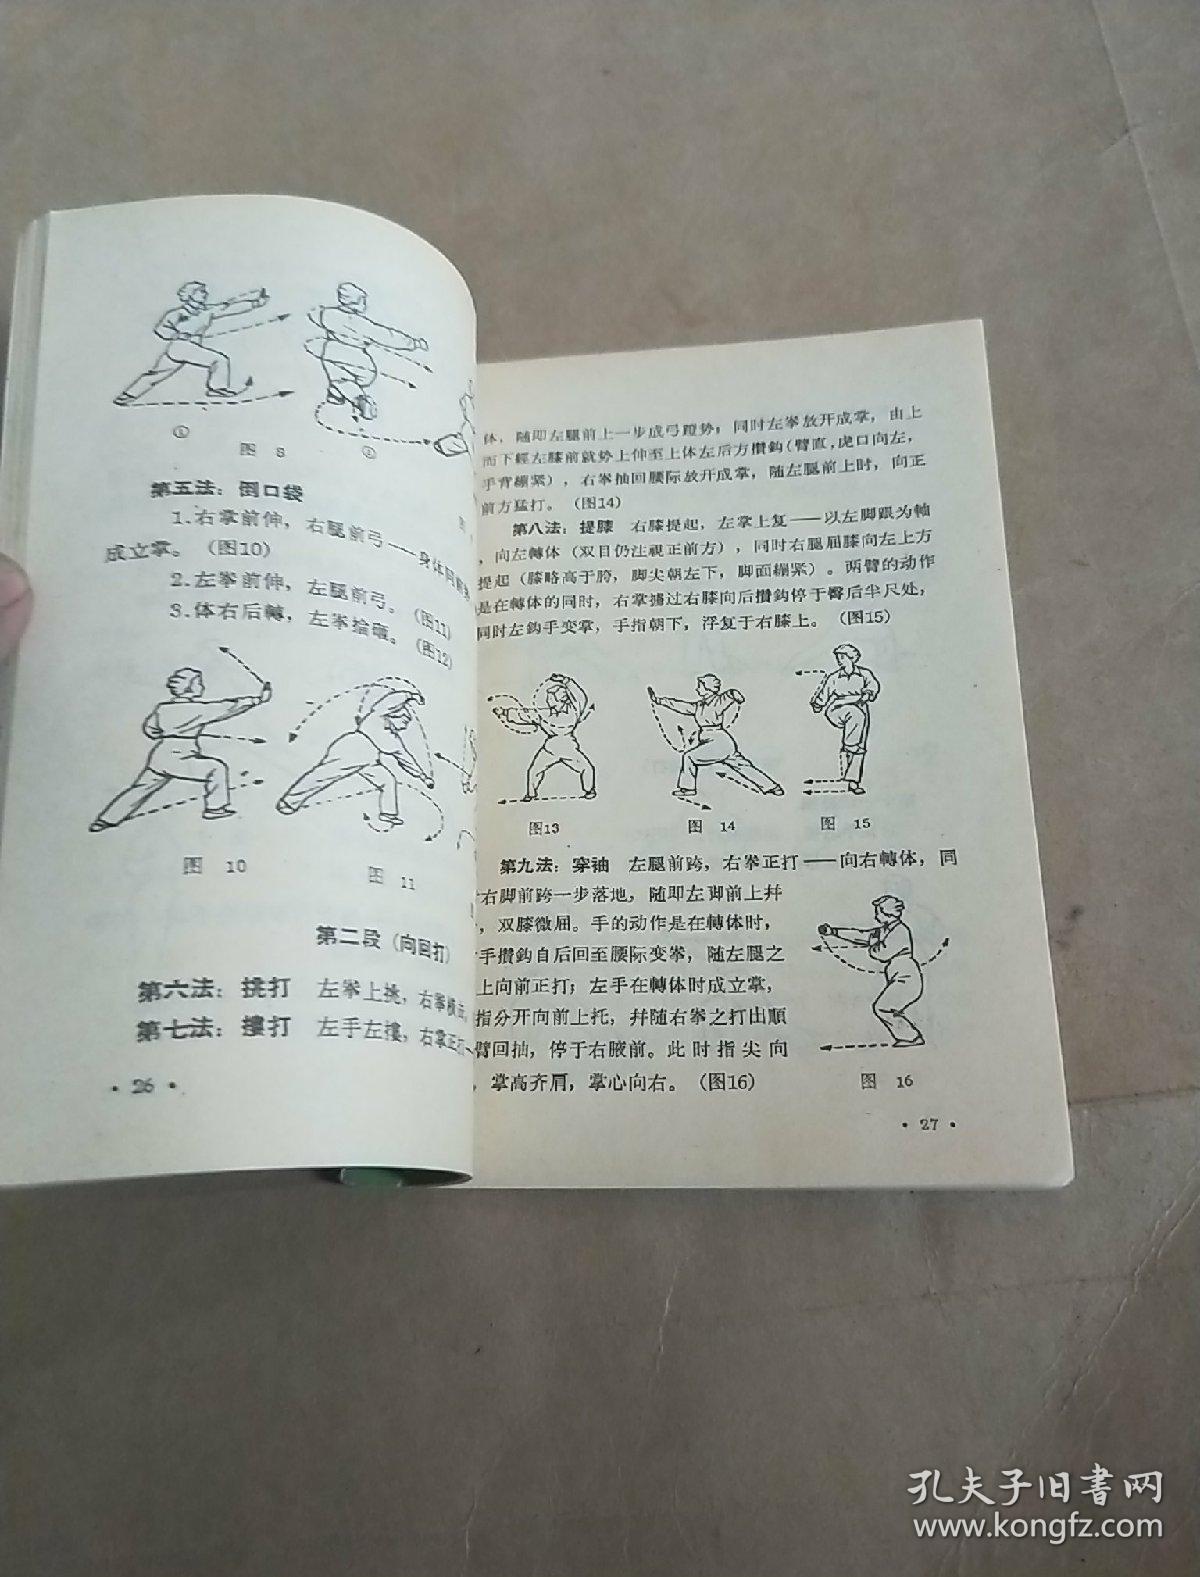 ① 图 8 ②
第五法：倒口袋
1.右掌前伸，右腿前弓——身体向
成立掌。（图10）
2.左拳前伸，左腿前弓。（图11）
3.体右后轉，左拳
（图12）
图 10
图 11
第二段（向回打）
第六法：挑打 左拳上挑，右拳横
第七法：摟打 左手左摟，右掌正打
• 26 •
体，随即左腿前上一步成弓蹬势；同时左拳放开成掌，由上
而下經左膝前就势上伸至上体左后方攢鈎（臂直，虎口向左，
手背綳紧），右拳抽回腰际放开成掌，随左腿前上时，向正
前方猛打。（图14）
第八法：提膝 右膝提起，左掌上复——以左脚跟为軸
，向左轉体（双目仍注視正前方），同时右腿屈膝向左上方
提起（膝略高于胯，脚尖朝左下，脚面綳紧）。两臂的动作
是在轉体的同时，右掌摟过右膝向后攢鈎停于臀后半尺处，
同时左鈎手变掌，手指朝下，浮复于右膝上。（图15）
图13
图 14
图 15
第九法：穿袖 左腿前跨，右拳正打——向右轉体，同
右脚前跨一步落地，随即左脚前上幷
，双膝微屈。手的动作是在轉体时，
手攢鈎自后回至腰际变拳，随左腿之
上向前正打；左手在轉体时成立掌，
指分开向前上托，幷随右拳之打出順
臂回抽，停于右腋前。此时指尖向
，掌高齐肩，掌心向右。（图16）
图 16
• 27 •
孔夫子旧书网
www.kongfz.com